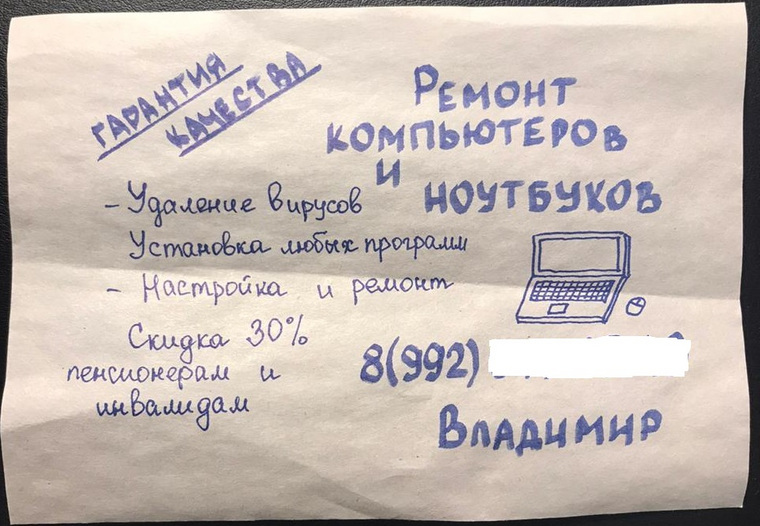 ГАРАНТИЯ
КАЧЕСТВА
РЕМОНТ
КОМПЬЮТЕРОВ
И
НОУТБУКОВ
- Удаление вирусов
Установка любых программ
- Настройка и ремонт
Скидка 30%
пенсионерам и
инвалидам
8(992)
ВЛАДИМИР